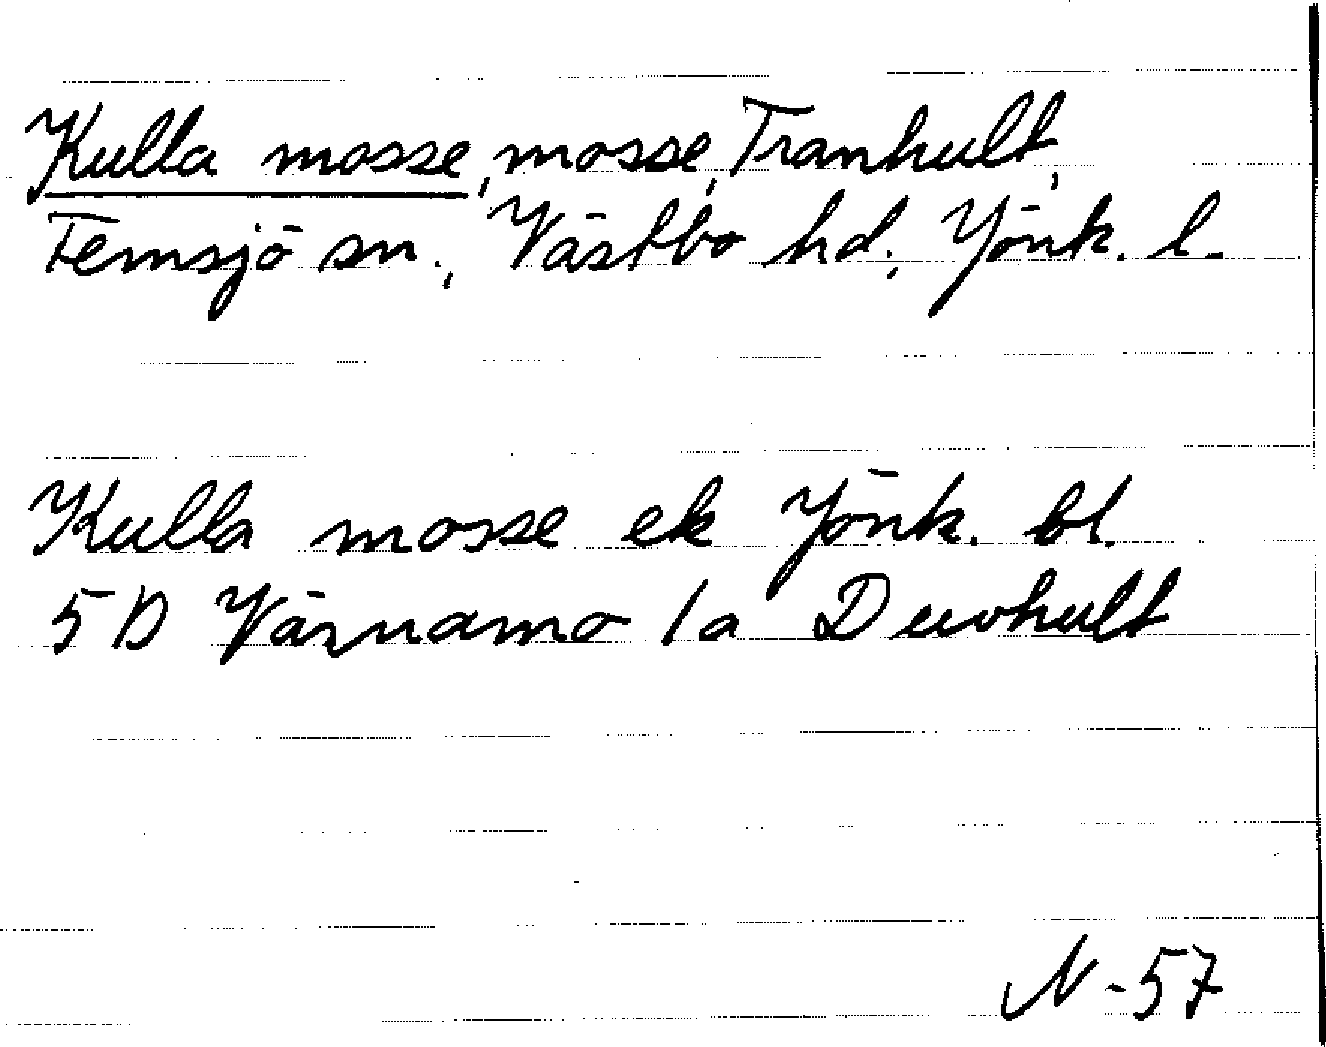 Kulla mosse, mosse, Tranhult,
Femsjö sn., Västbo hd, Jönk. l.
Kulla mosse ek Jönk. bl.
5D Värnamo 1a Duvhult
N-57